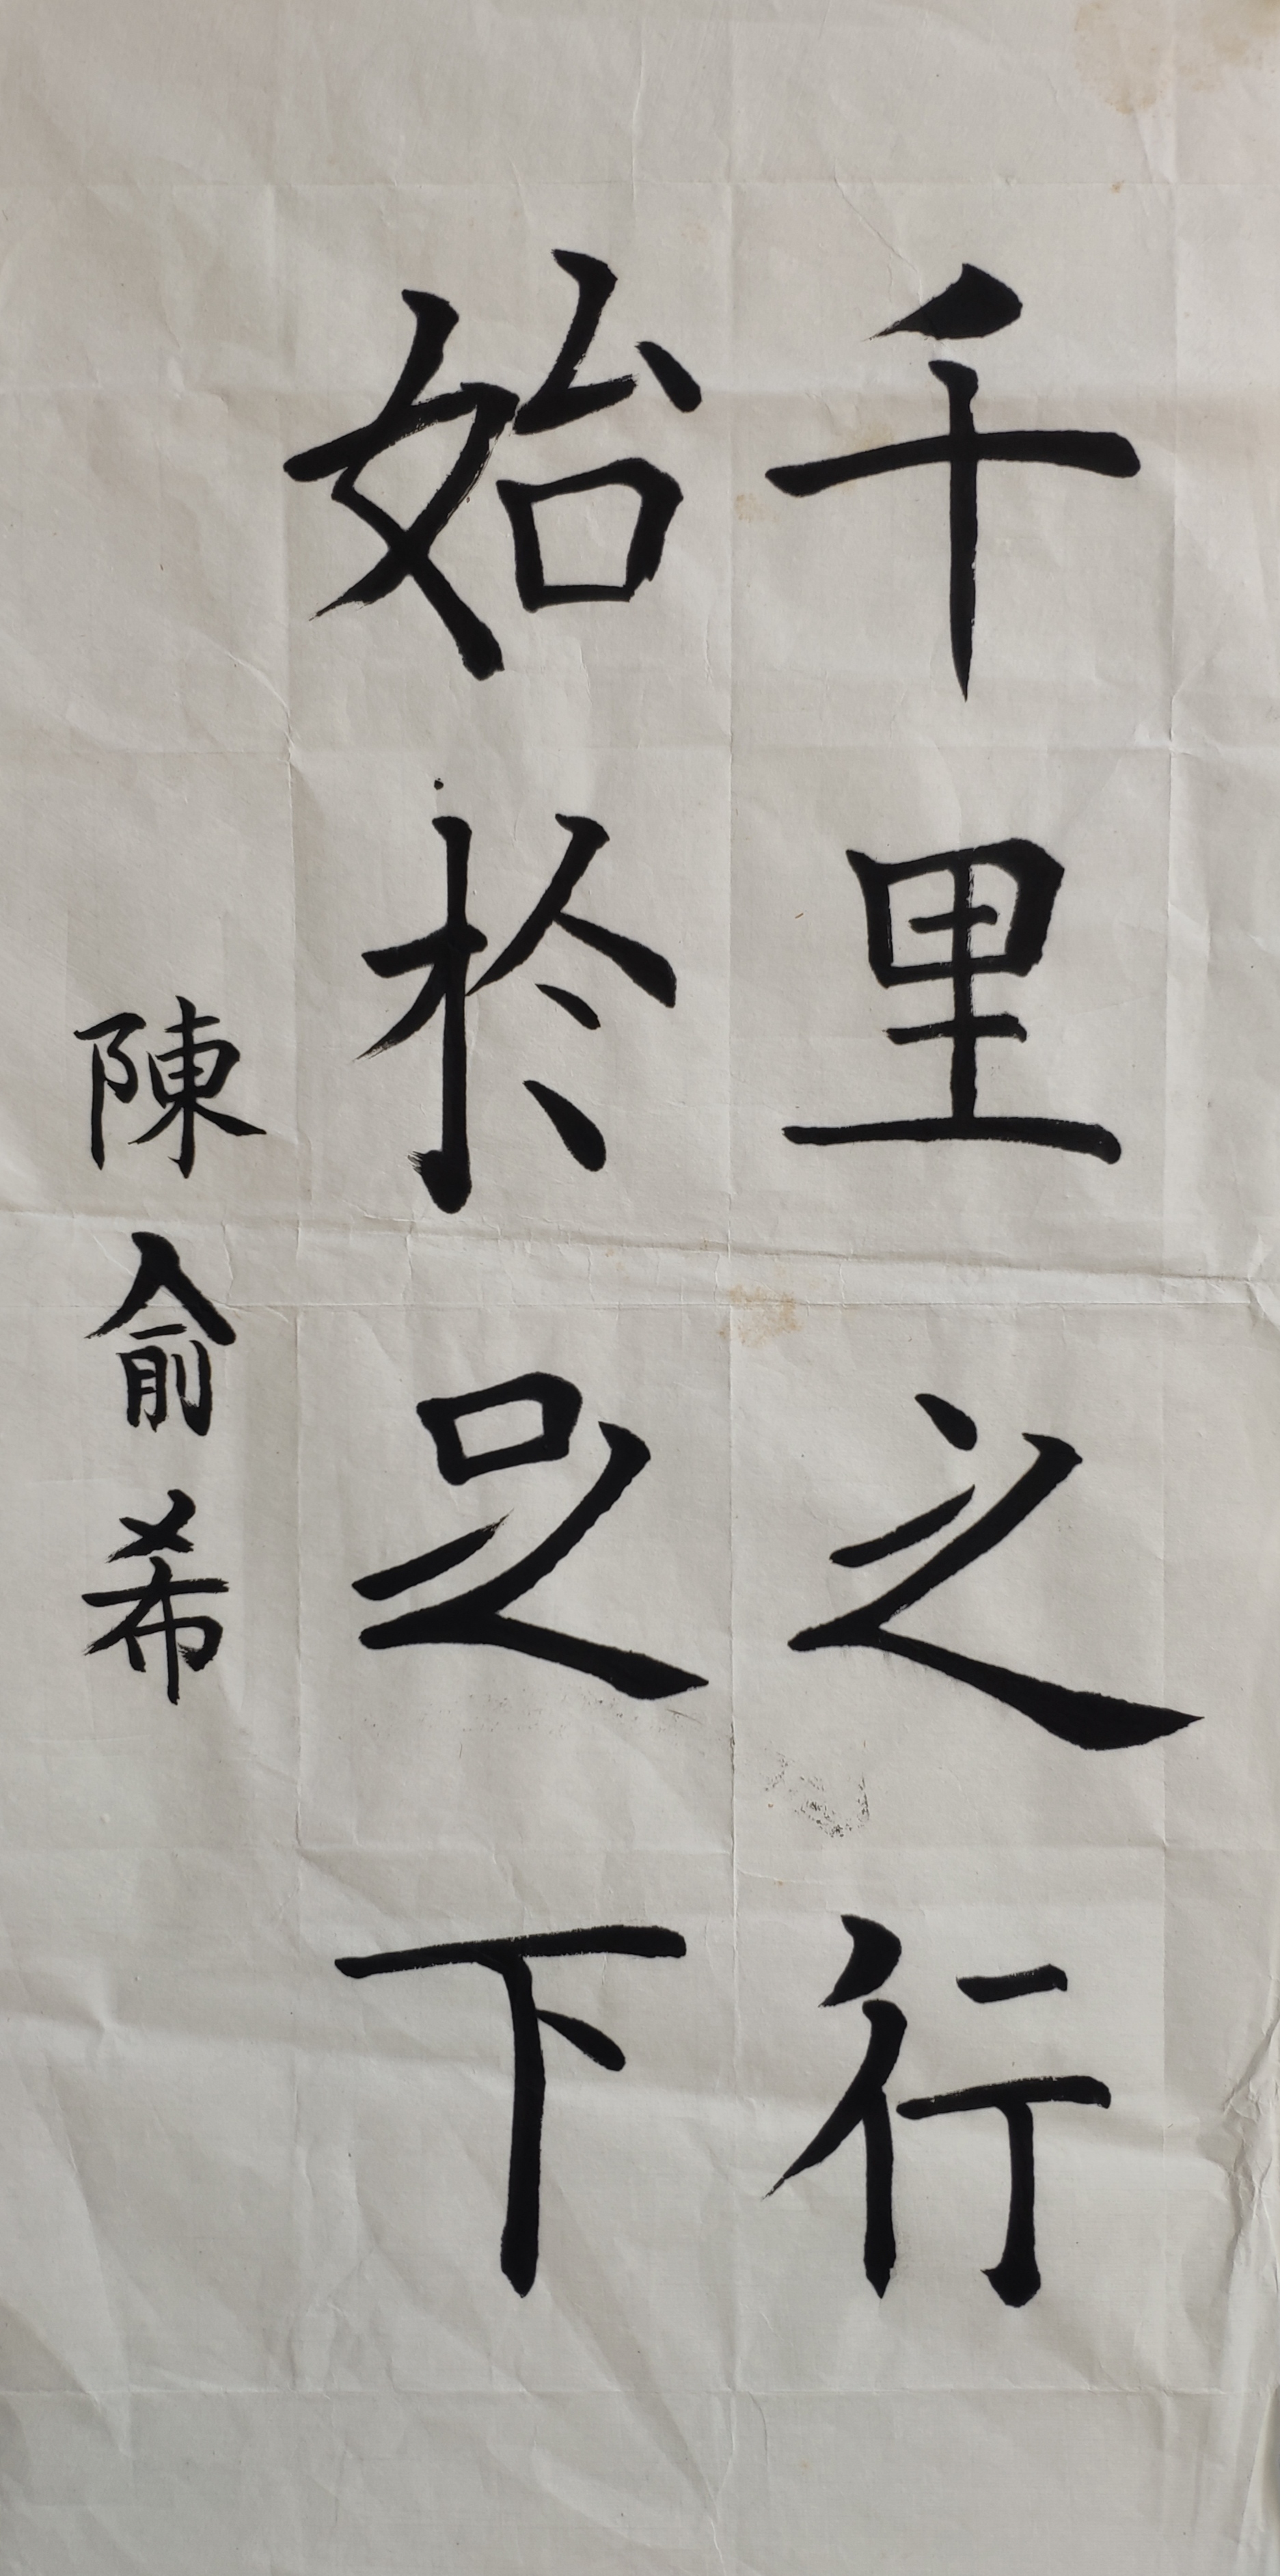 千里之行
始於足下
陳俞希